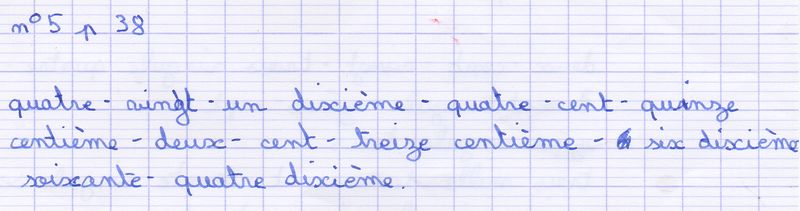 n°5 p 38
quatre-vingt-un dixième - quatre-cent-quinze
centième - deux-cent-treize centième - six dixième
soixante-quatre dixième.